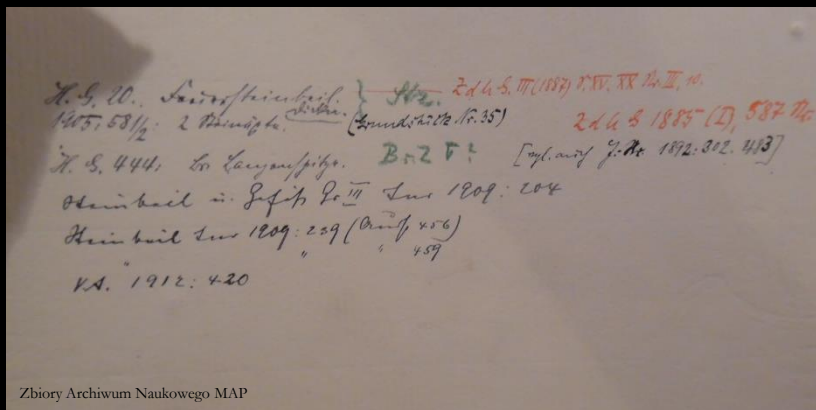 H. G. 20. Feuersteinbeil. } Stz. Z d h G. III (1887) S. XV. XX No. II, 10.
1905: 581/2: 2 Steinäxte. (Grundstück Nr. 35) Z d h G 1885 (I), 587 No.
H. G. 444: Br. Lanzenspitze. Br Z V? [vgl. auch J. Nr. 1892: 302. 483]
Steinbeil u. Gefäß Gr III Inv 1909: 204
Steinbeil Inv 1909: 239 (Aufs 456)
" " " 459
V.A. 1912: 420
Zbiory Archiwum Naukowego MAP